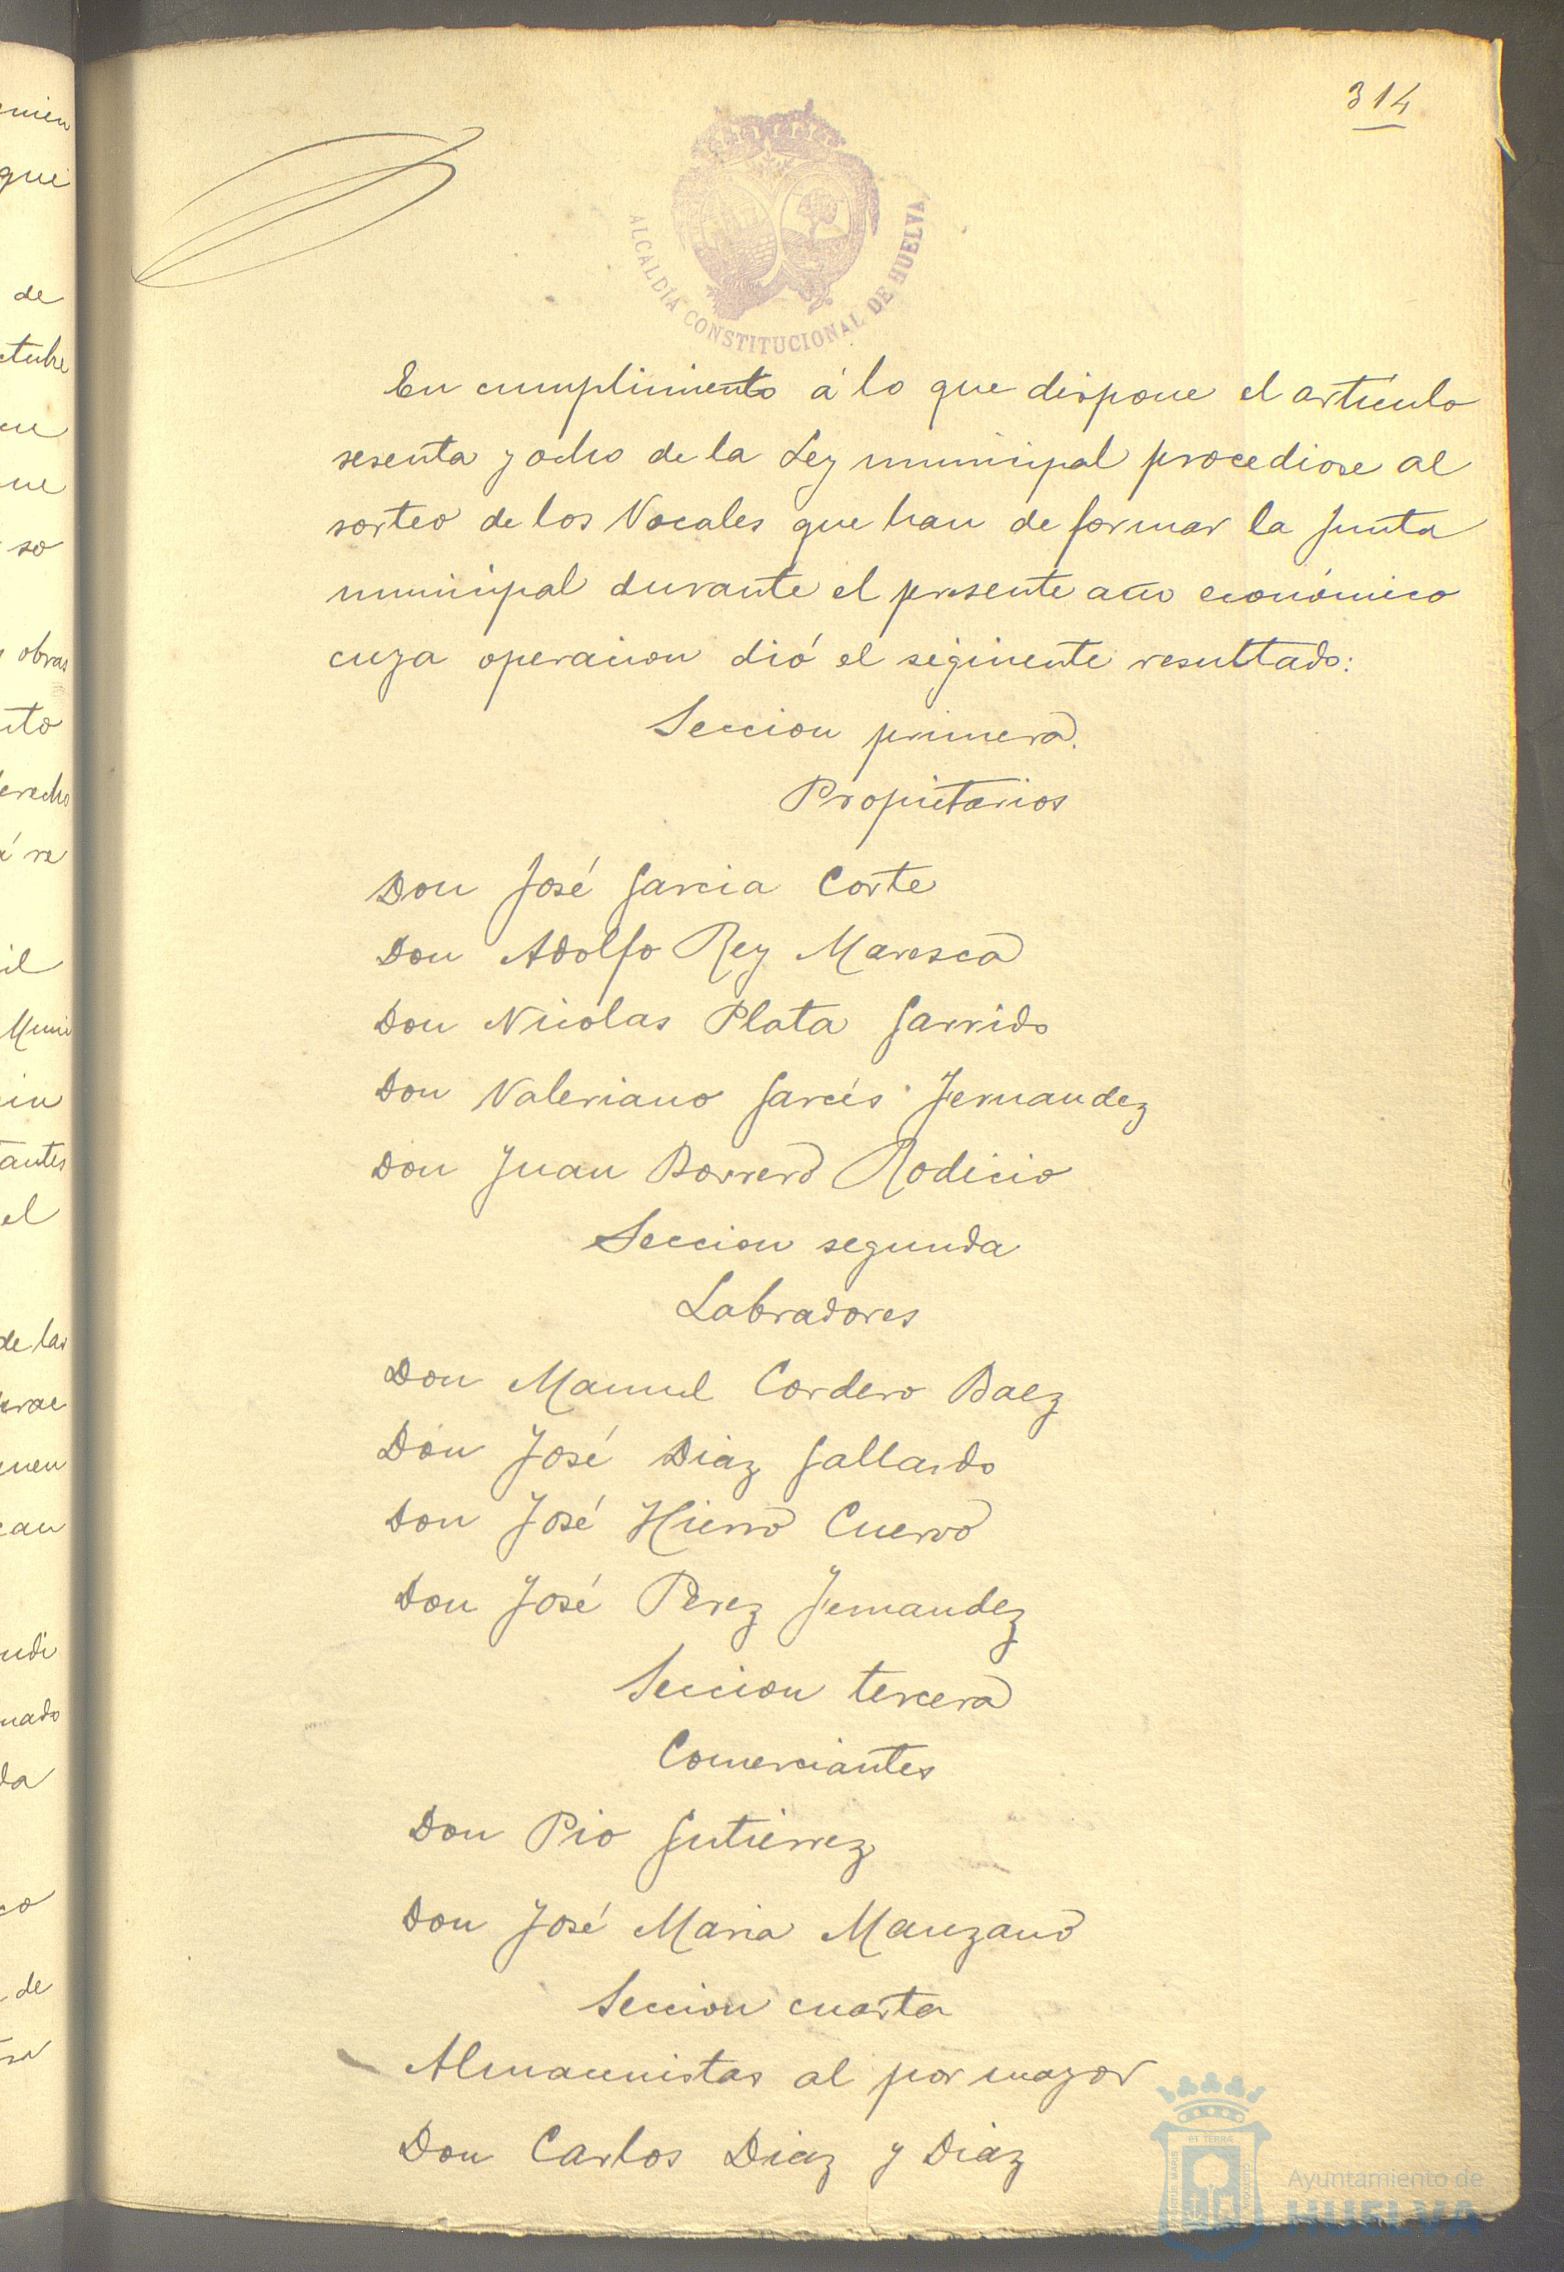 314
ALCALDÍA CONSTITUCIONAL DE HUELVA
En cumplimiento á lo que dispone el artículo
sesenta y ocho de la Ley municipal procediose al
sorteo de los Vocales que han de formar la Junta
municipal durante el presente año económico
cuya operacion dió el siguiente resultado:
Seccion primera.
Propietarios
Don José Garcia Corte
Don Adolfo Rey Maresca
Don Nicolas Plata Garrido
Don Valeriano Garcés Fernandez
Don Juan Borrero Rodicio
Seccion segunda
Labradores
Don Manuel Cordero Baez
Don José Diaz Gallardo
Don José Hierro Cuervo
Don José Perez Fernandez
Seccion tercera
Comerciantes
Don Pio Gutierrez
Don José Maria Manzano
Seccion cuarta
Almacenistas al por mayor
Don Carlos Diaz y Diaz
Ayuntamiento de
HUELVA